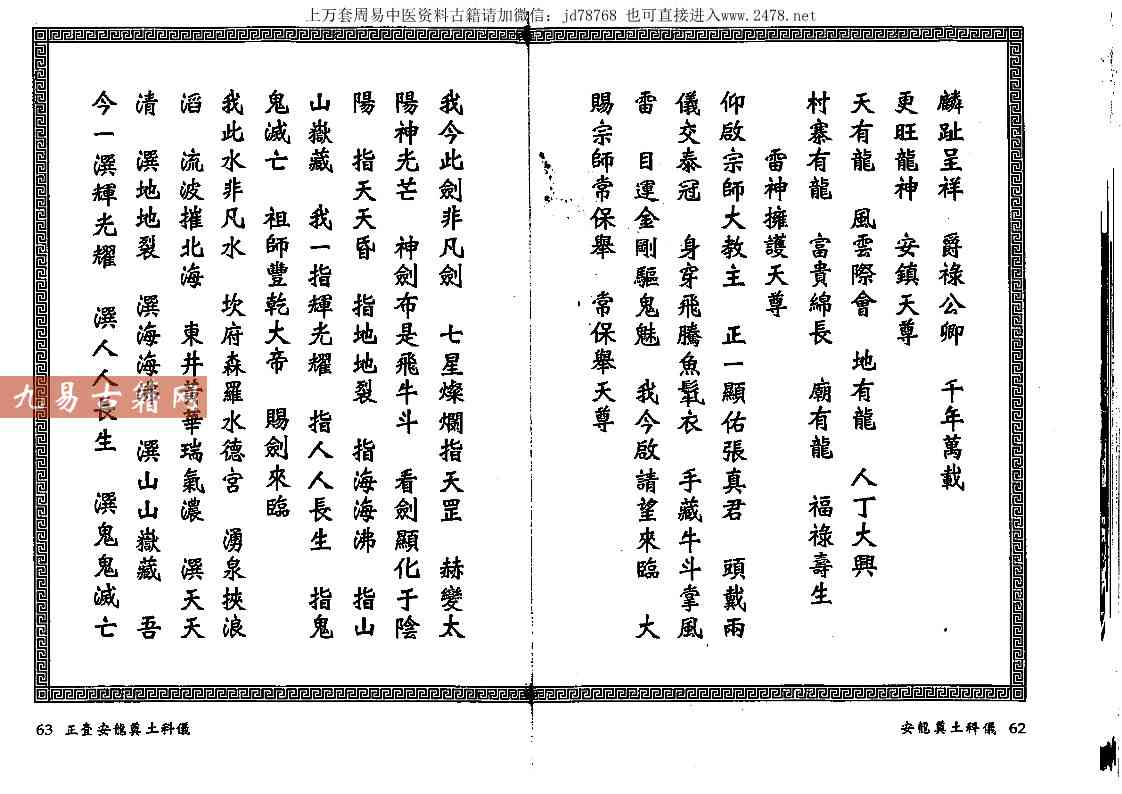 上万套周易中医资料古籍请加微信：jd78768 也可直接进入www.2478.net
麟趾呈祥 爵祿公卿 千年萬載
更旺龍神 安鎮天尊
天有龍 風雲際會 地有龍 人丁大興
村寨有龍 富貴綿長 廟有龍 福祿壽生
雷神擁護天尊
仰啟宗師大教主 正一顯佑張真君 頭戴兩
儀交泰冠 身穿飛騰魚鬣衣 手藏牛斗掌風
雷 目運金剛驅鬼魅 我今啟請望來臨 大
賜宗師常保舉 常保舉天尊
安龍奠土科儀 62
我今此劍非凡劍 七星燦爛指天罡 赫變太
陽神光芒 神劍布是飛牛斗 看劍顯化于陰
陽 指天天昏 指地地裂 指海海沸 指山
山嶽藏 我一指輝光耀 指人人長生 指鬼
鬼滅亡 祖師豐乾大帝 賜劍來臨
我此水非凡水 坎府森羅水德宮 湧泉挾浪
滔 流波摧北海 東井黃華瑞氣濃 潠天天
清 潠地地裂 潠海海沸 潠山山嶽藏 吾
今一潠輝光耀 潠人人長生 潠鬼鬼滅亡
63 正壹安龍奠土科儀
九易古籍网